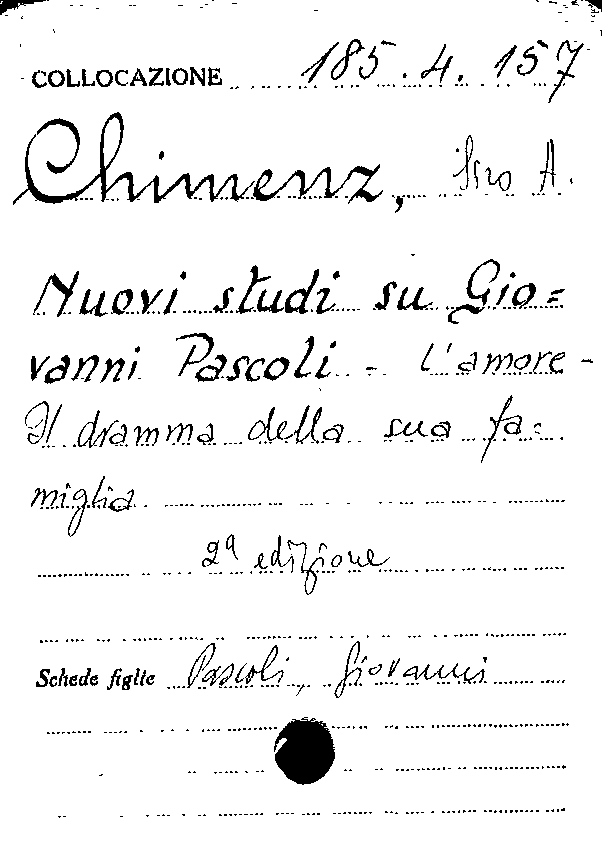 COLLOCAZIONE 185.4.157
Chimenz, Siro A.
Nuovi studi su Gio=
vanni Pascoli - L'amore -
Il dramma della sua fa=
miglia
2ª edizione
Schede figlie Pascoli, Giovanni